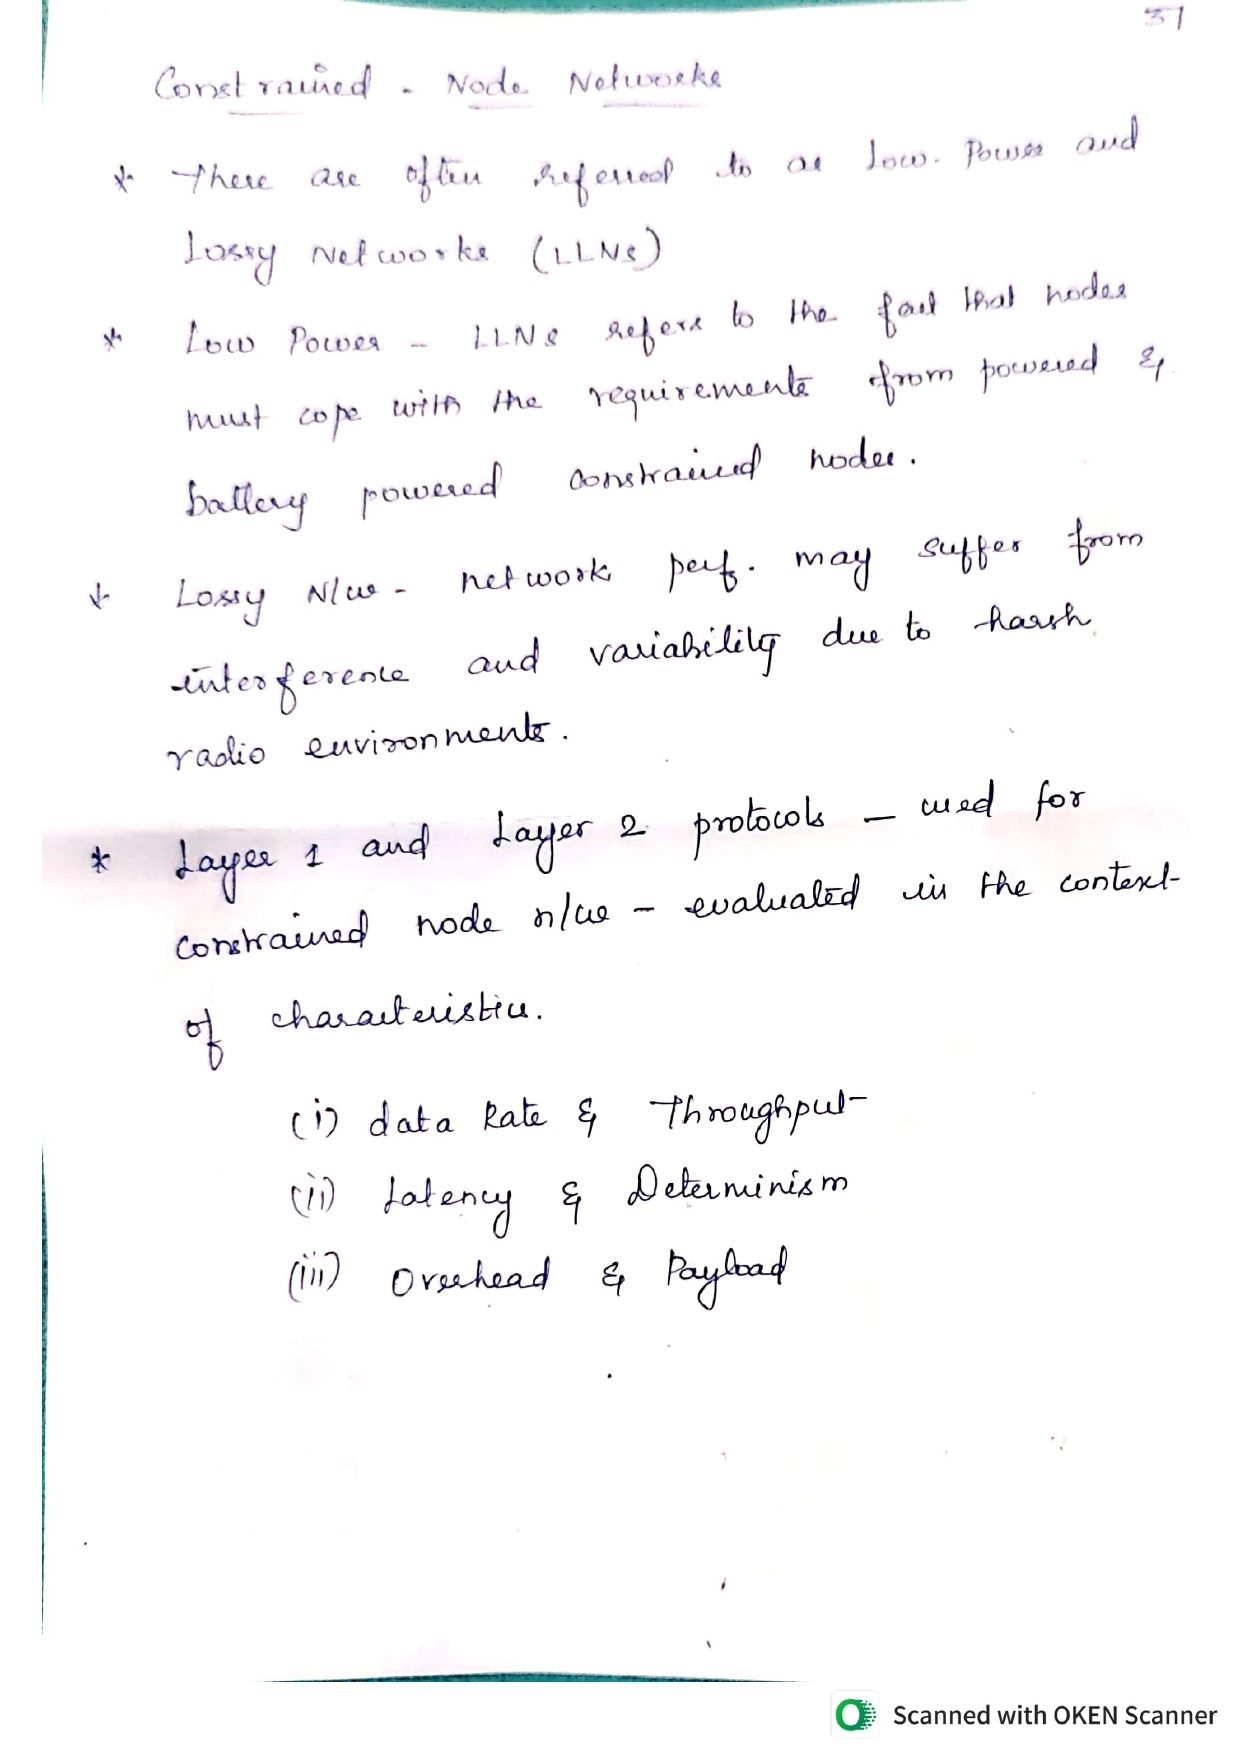 37
Constrained - Node Networks
* There are often referred to as Low-Power and
Lossy Networks (LLNs)
* Low Power - LLNs refers to the fact that nodes
must cope with the requirements from powered &
battery powered constrained nodes.
* Lossy N/w - network perf. may suffer from
interference and variability due to harsh
radio environments.
* Layer 1 and Layer 2 protocols - used for
constrained node n/w - evaluated in the context
of characteristics.
(i) data Rate & Throughput
(ii) Latency & Determinism
(iii) Overhead & Payload
Scanned with OKEN Scanner